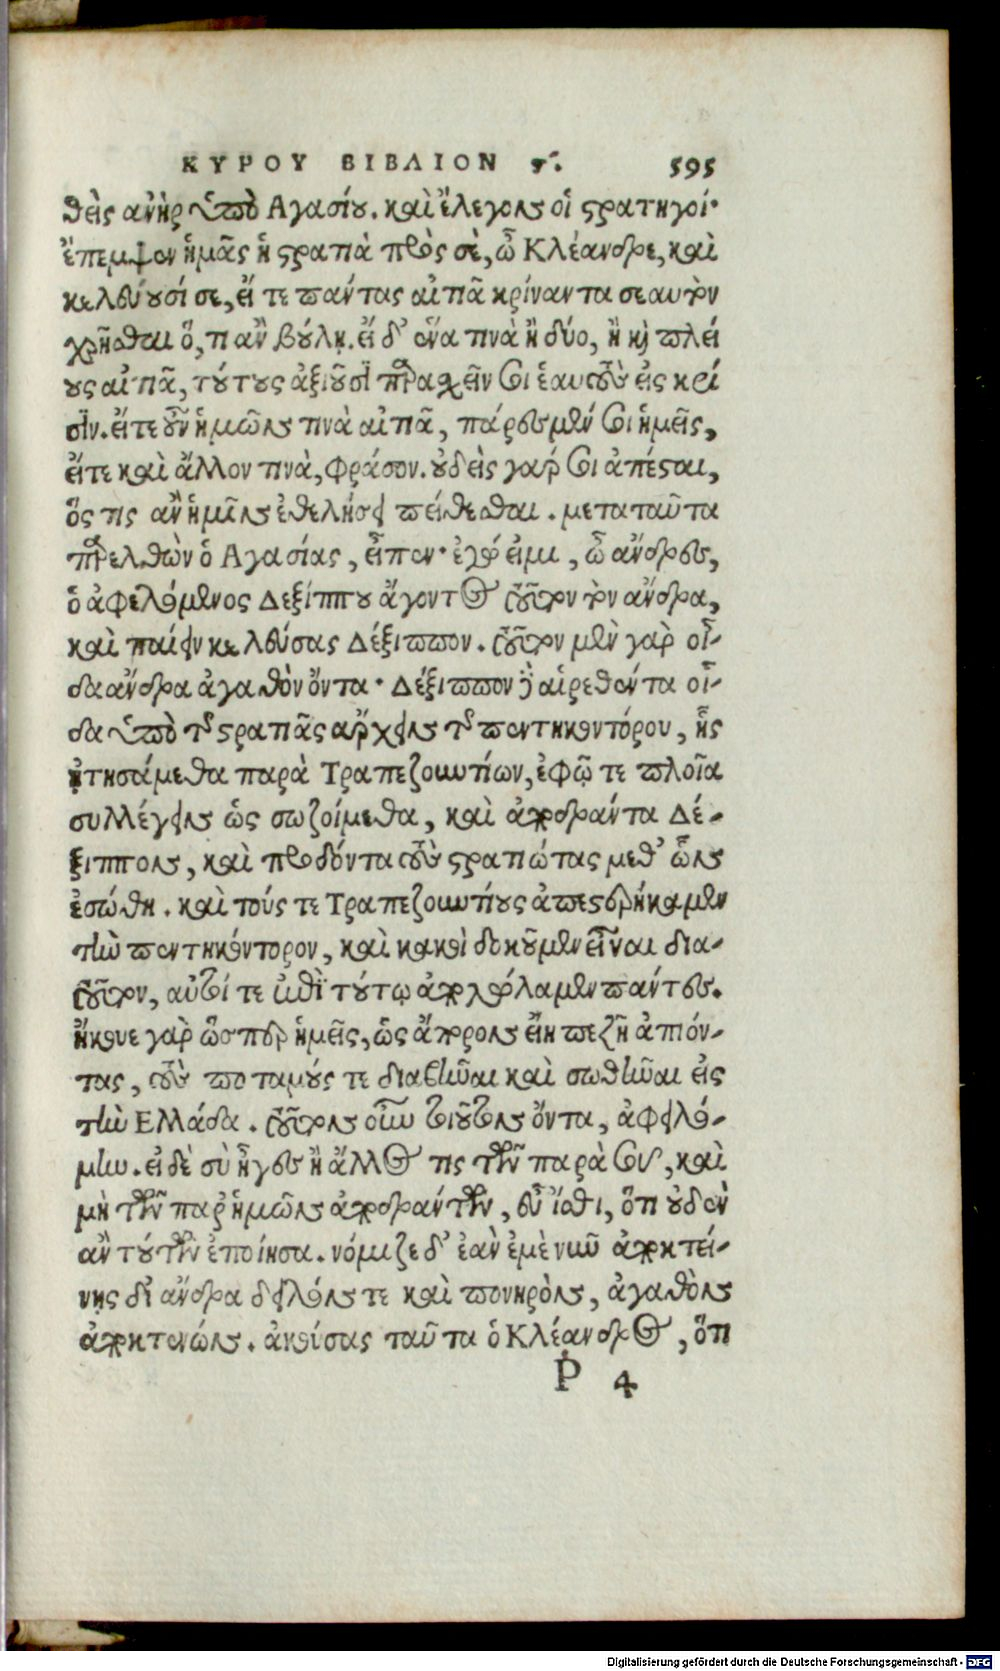 ΚΥΡΟΥ ΒΙΒΛΙΟΝ ϛ. 595
θεὶς ἀνὴρ ὑπὸ Ἀγασίου. καὶ ἔλεγον οἱ στρατηγοί·
ἔπεμψεν ἡμᾶς ἡ στρατιὰ πρὸς σὲ, ὦ Κλέανδρε, καὶ
κελεύουσί σε, εἴ τε πάντας αἰτιᾶ κρίναντα σεαυτὸν
χρῆσθαι ὅ,τι ἂν βούλῃ. εἴ δ' ἕνα τινὰ ἢ δύο, ἢ καὶ πλεί
ους αἰτιᾶ, τούτους ἀξιοῦσι παρασχεῖν σοι ἑαυτοὺς εἰς κρί
σιν. εἴτε οὖν ἡμῶν τινὰ αἰτιᾶ, πάρεσμέν σοι ἡμεῖς,
εἴτε καὶ ἄλλον τινὰ, φράσον. οὐδεὶς γάρ σοι ἀπέσται,
ὅς τις ἂν ἡμῖν ἐθελήσει πείθεσθαι. μετὰ ταῦτα
παρελθὼν ὁ Ἀγασίας, εἶπεν· ἐγώ εἰμι, ὦ ἄνδρες,
ὁ ἀφελόμενος Δεξίππου ἄγοντος τοῦτον τὸν ἄνδρα,
καὶ παίειν κελεύσας Δέξιππον. τοῦτον μὲν γὰρ οἶ-
δα ἄνδρα ἀγαθὸν ὄντα· Δέξιππον δὲ αἱρεθέντα οἶ-
δα ὑπὸ τῆς στρατιᾶς ἄρχειν τῆς πεντηκοντόρου, ἧς
ᾐτησάμεθα παρὰ Τραπεζουντίων, ἐφῷ τε πλοῖα
συλλέγειν ὡς σωζοίμεθα, καὶ ἀποδράντα Δέ-
ξιππον, καὶ προδόντα τοὺς στρατιώτας μεθ' ὧν
ἐσώθη. καὶ τούς τε Τραπεζουντίους ἀπεστερήκαμεν
τὴν πεντηκόντορον, καὶ κακοὶ δοκοῦμεν εἶναι διὰ-
τοῦτον, αὐτοί τε ἐπὶ τούτῳ ἀπολώλαμεν πάντες.
ἤκουε γὰρ ὥσπερ ἡμεῖς, ὡς ἄπορον εἴη πεζῇ ἀπιόν-
τας, τοὺς ποταμούς τε διαβῆναι καὶ σωθῆναι εἰς
τὴν Ἑλλάδα. τοῦτον οὖν τοιοῦτον ὄντα, ἀφειλό-
μην. εἰ δὲ σὺ ἦγες ἢ ἄλλος τις τῶν παρὰ σοῦ, καὶ
μὴ τῶν παρ' ἡμῶν ἀποδράντων, εὖ ἴσθι, ὅτι οὐδὲν
ἂν τούτων ἐποίησα. νόμιζε δ' ἐὰν ἐμὲ νῦν ἀποκτεί-
νῃς δι' ἄνδρα δειλόν τε καὶ πονηρὸν, ἀγαθὸν
ἀποκτενών. ἀκούσας ταῦτα ὁ Κλέανδρος, ὅτι
P 4
Digitalisierung gefördert durch die Deutsche Forschungsgemeinschaft - DFG